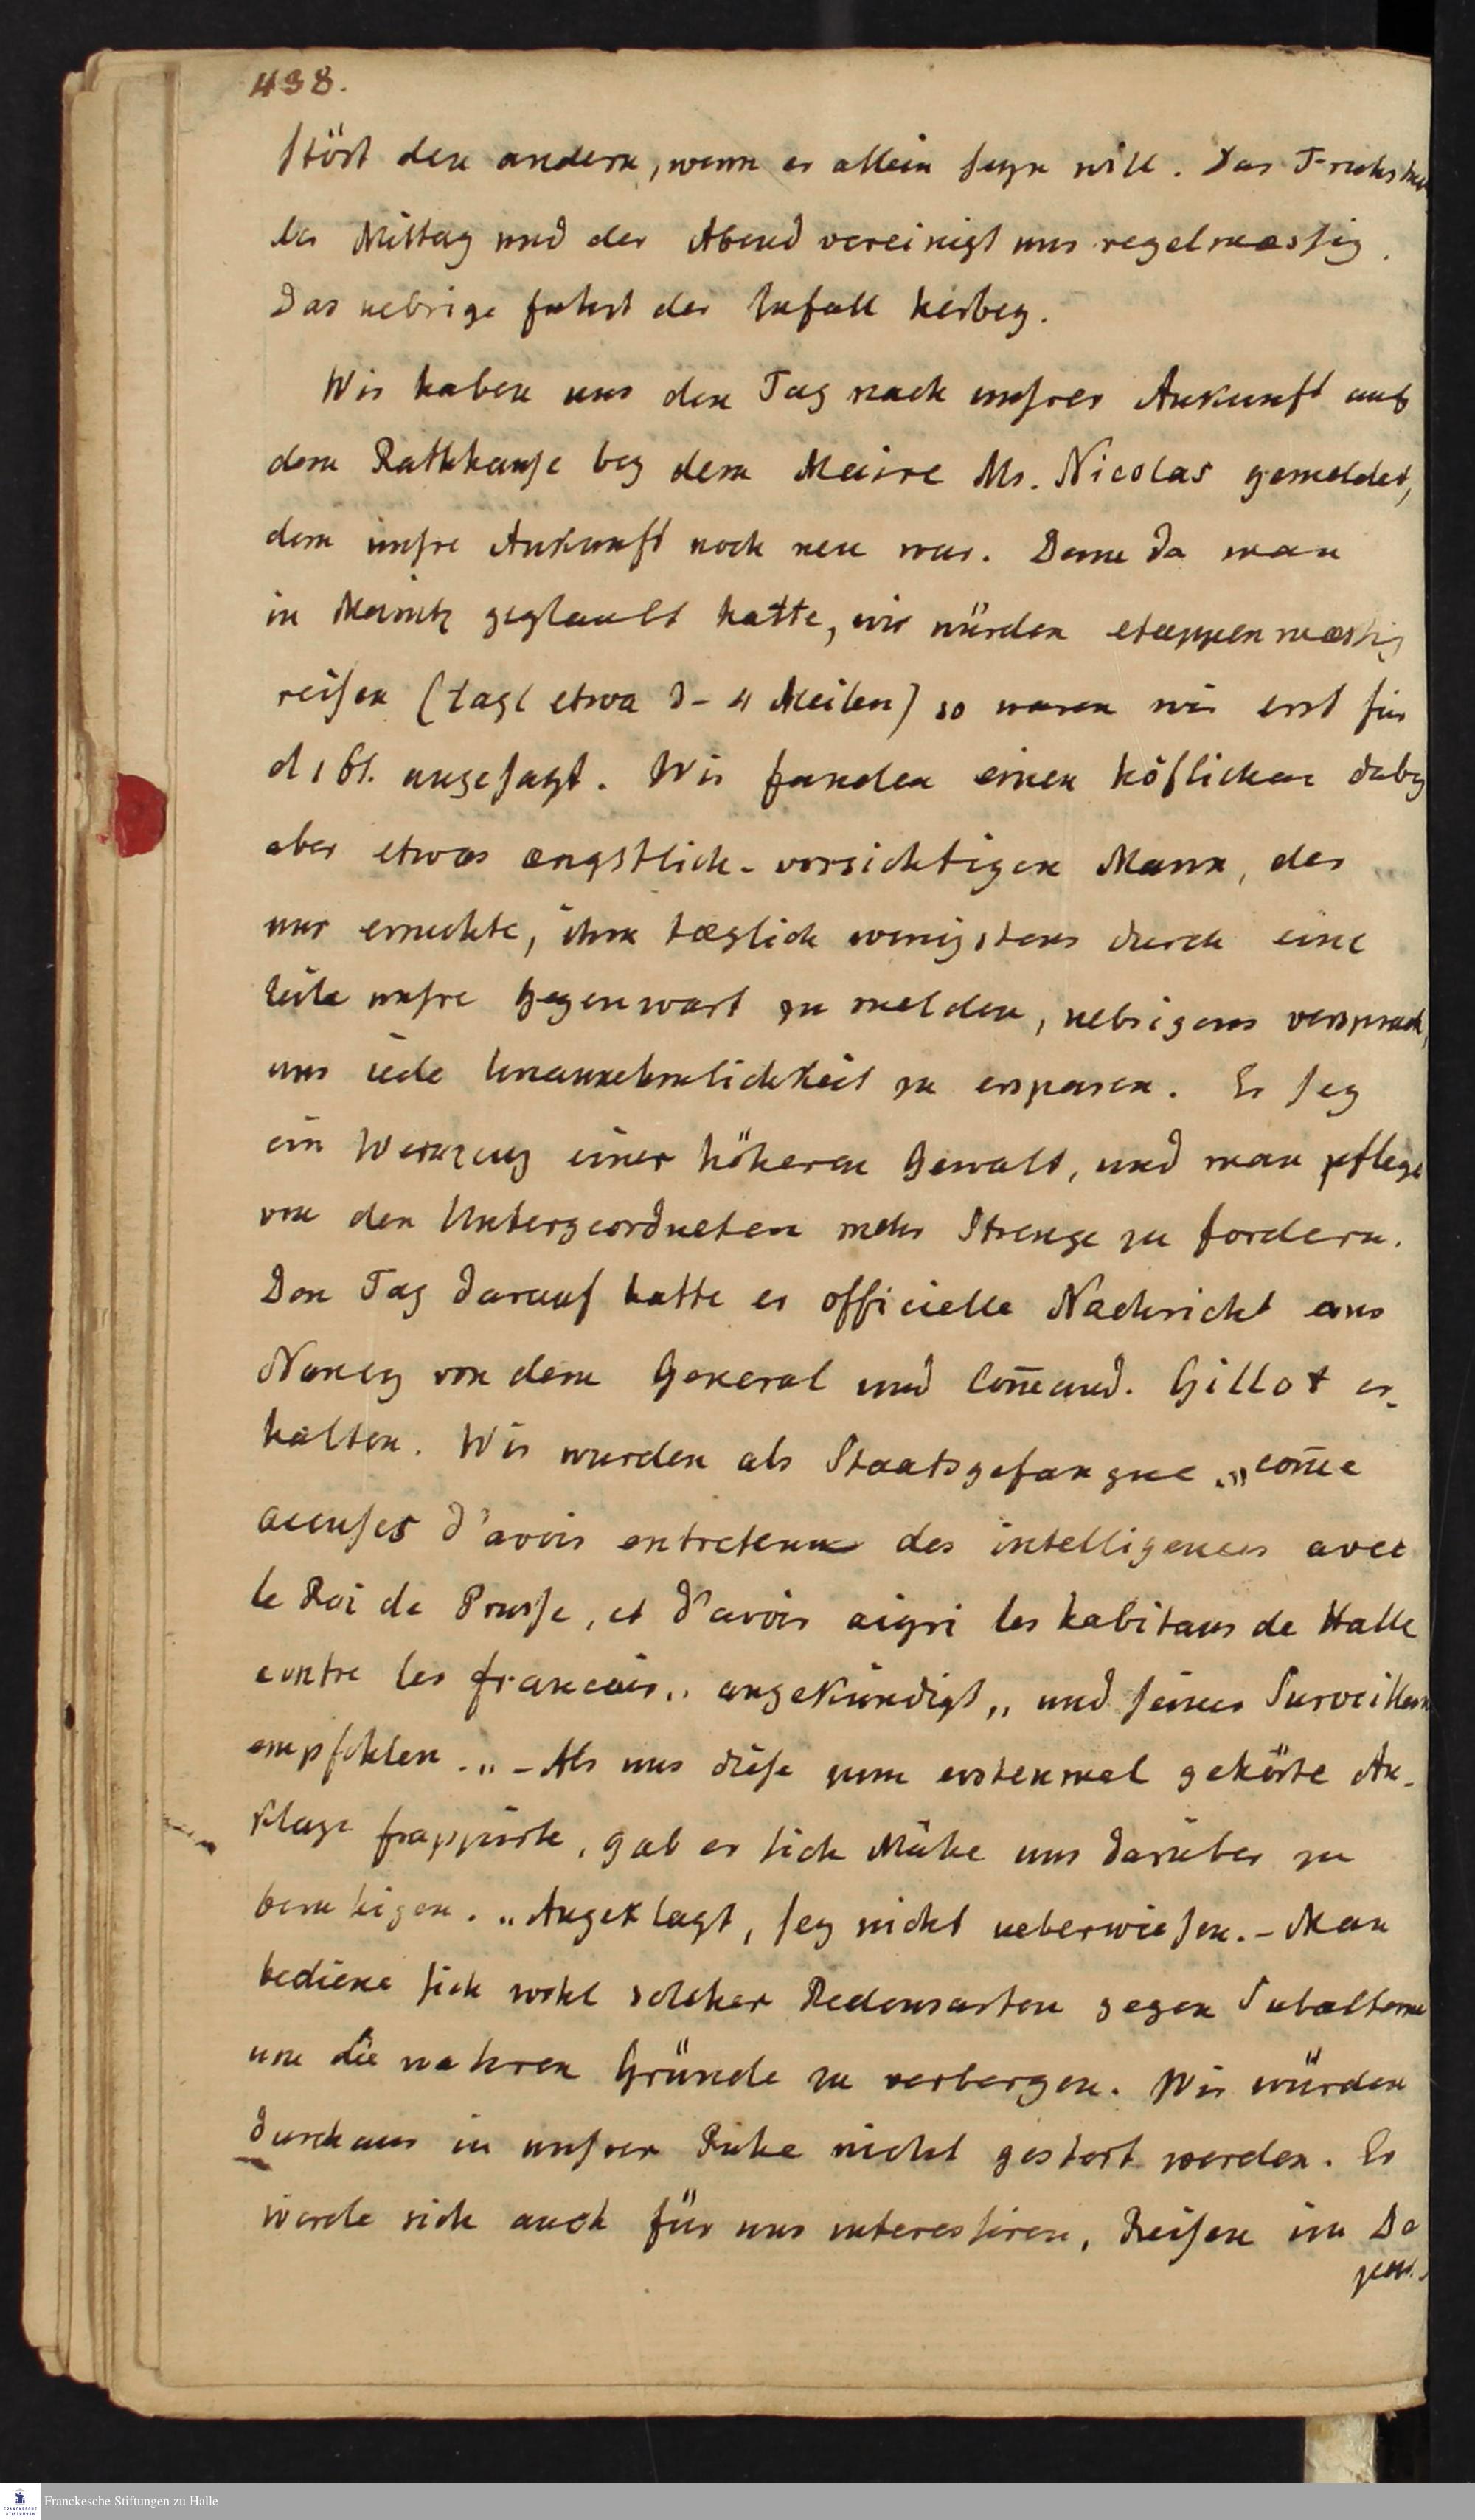 438.
stört den andern, wenn er allein seyn will. Das Fruhstuck
der Mittag und der Abend vereinigt uns regelmæssig.
Das uebrige fuhrt der Zufall herbey.
Wir haben uns den Tag nach unsrer Ankunft auf
dem Rathhause bey dem Maire Mr. Nicolas gemeldet,
dem unsre Ankunft noch neu war. Denn da man
in Maintz geglaubt hatte, wir würden etappenmæssig
reisen (tagl etwa 3-4 Meilen) so waren wir erst für
d 16t. angesagt. Wir fanden einen höflichen daby
aber etwas ængstlich-vorsichtigen Mann, der
nur ersuchte, ihm tæglich wenigstens durch eine
Zeile unsre Gegenwart zu melden, uebrigens versprach,
uns iede Unannehmlichkeit zu ersparen. Er sey
ein Werkzeug einer höheren Gewalt, und man pflege
von den Untergeordneten mehr Strenge zu fordern.
Den Tag darauf hatte er officielle Nachricht aus
Nancy von dem General und Com̄and. Gillot er-
halten. Wir wurden als Staatsgefangne „com̄e
accuses d'avoir entretenu des intelligences avec
le Roi de Prusse, et d'avoir aigri les habitans de Halle
contre les francois„ angekündigt„ und seiner Surveillan
empfohlen.„ - Als uns diese zum erstenmal gehörte An-
klage frappirte, gab er sich Mühe uns darüber zu
beruhigen. „Angeklagt, sey nicht ueberwiesen. - Man
bediene sich wohl solcher Redensarten gegen Subalterne
um die wahren Gründe zu verbergen. Wir würden
durchaus in unsrer Ruhe nicht gestort werden. Er
werde sich auch für uns interessiren, Reisen im De
par
Franckesche Stiftungen zu Halle